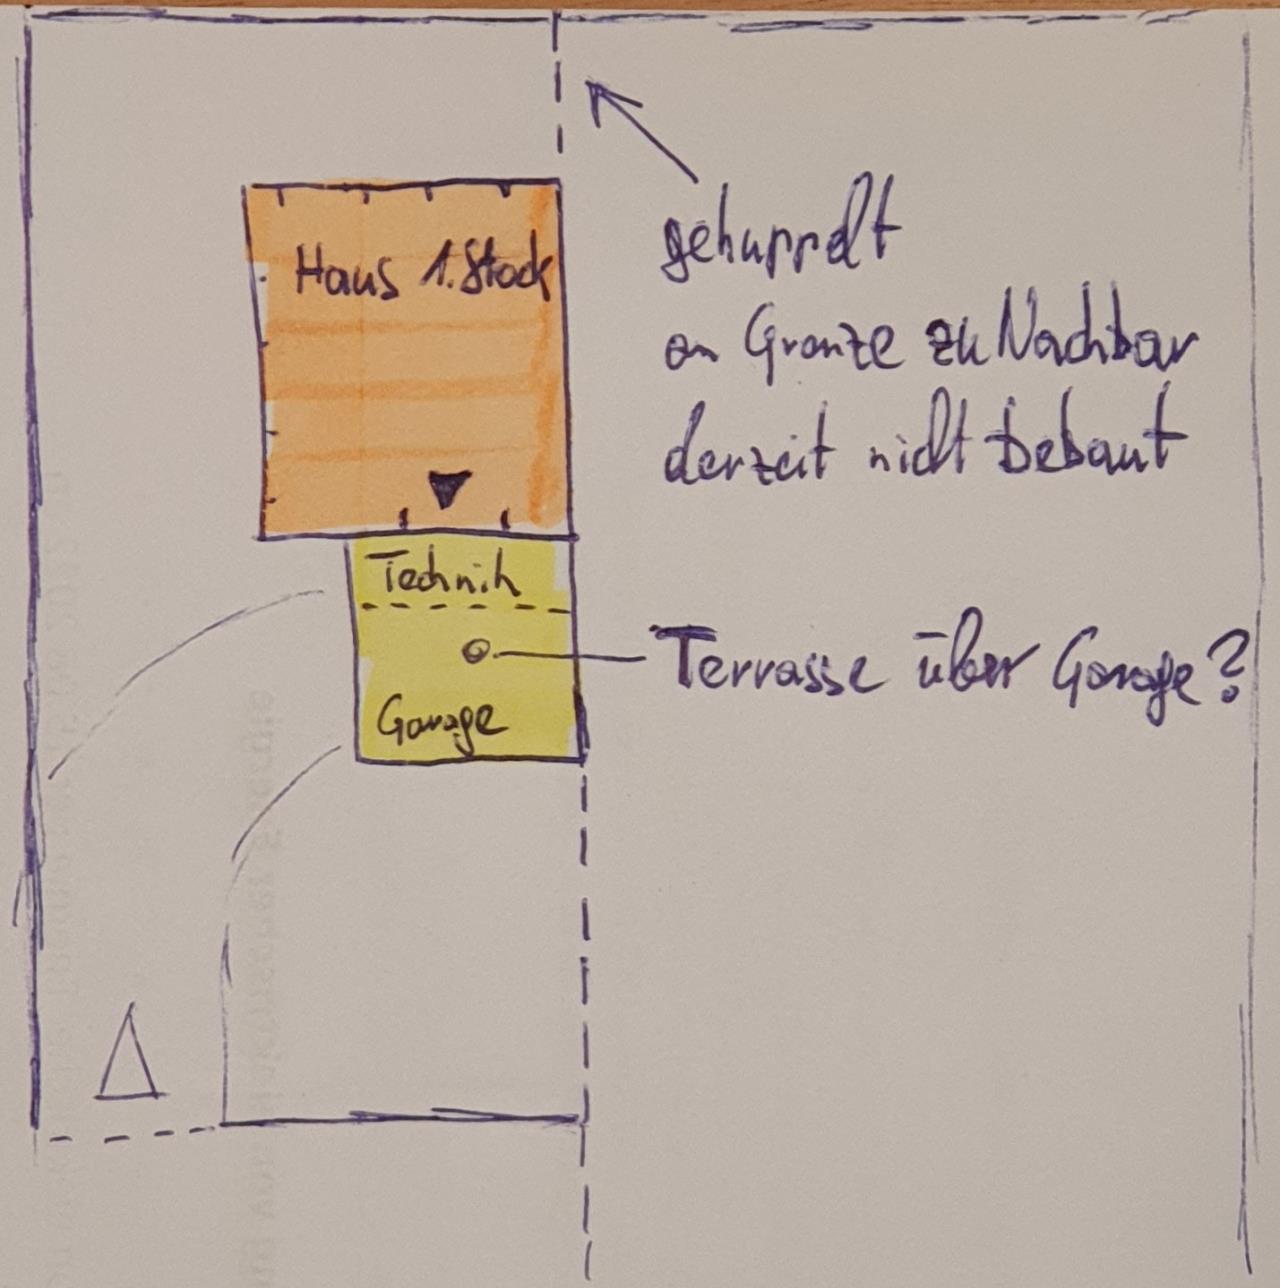 gekuppelt
an Grenze zu Nachbar
derzeit nicht bebaut
Haus 1. Stock
Technik
Terrasse über Garage?
Garage